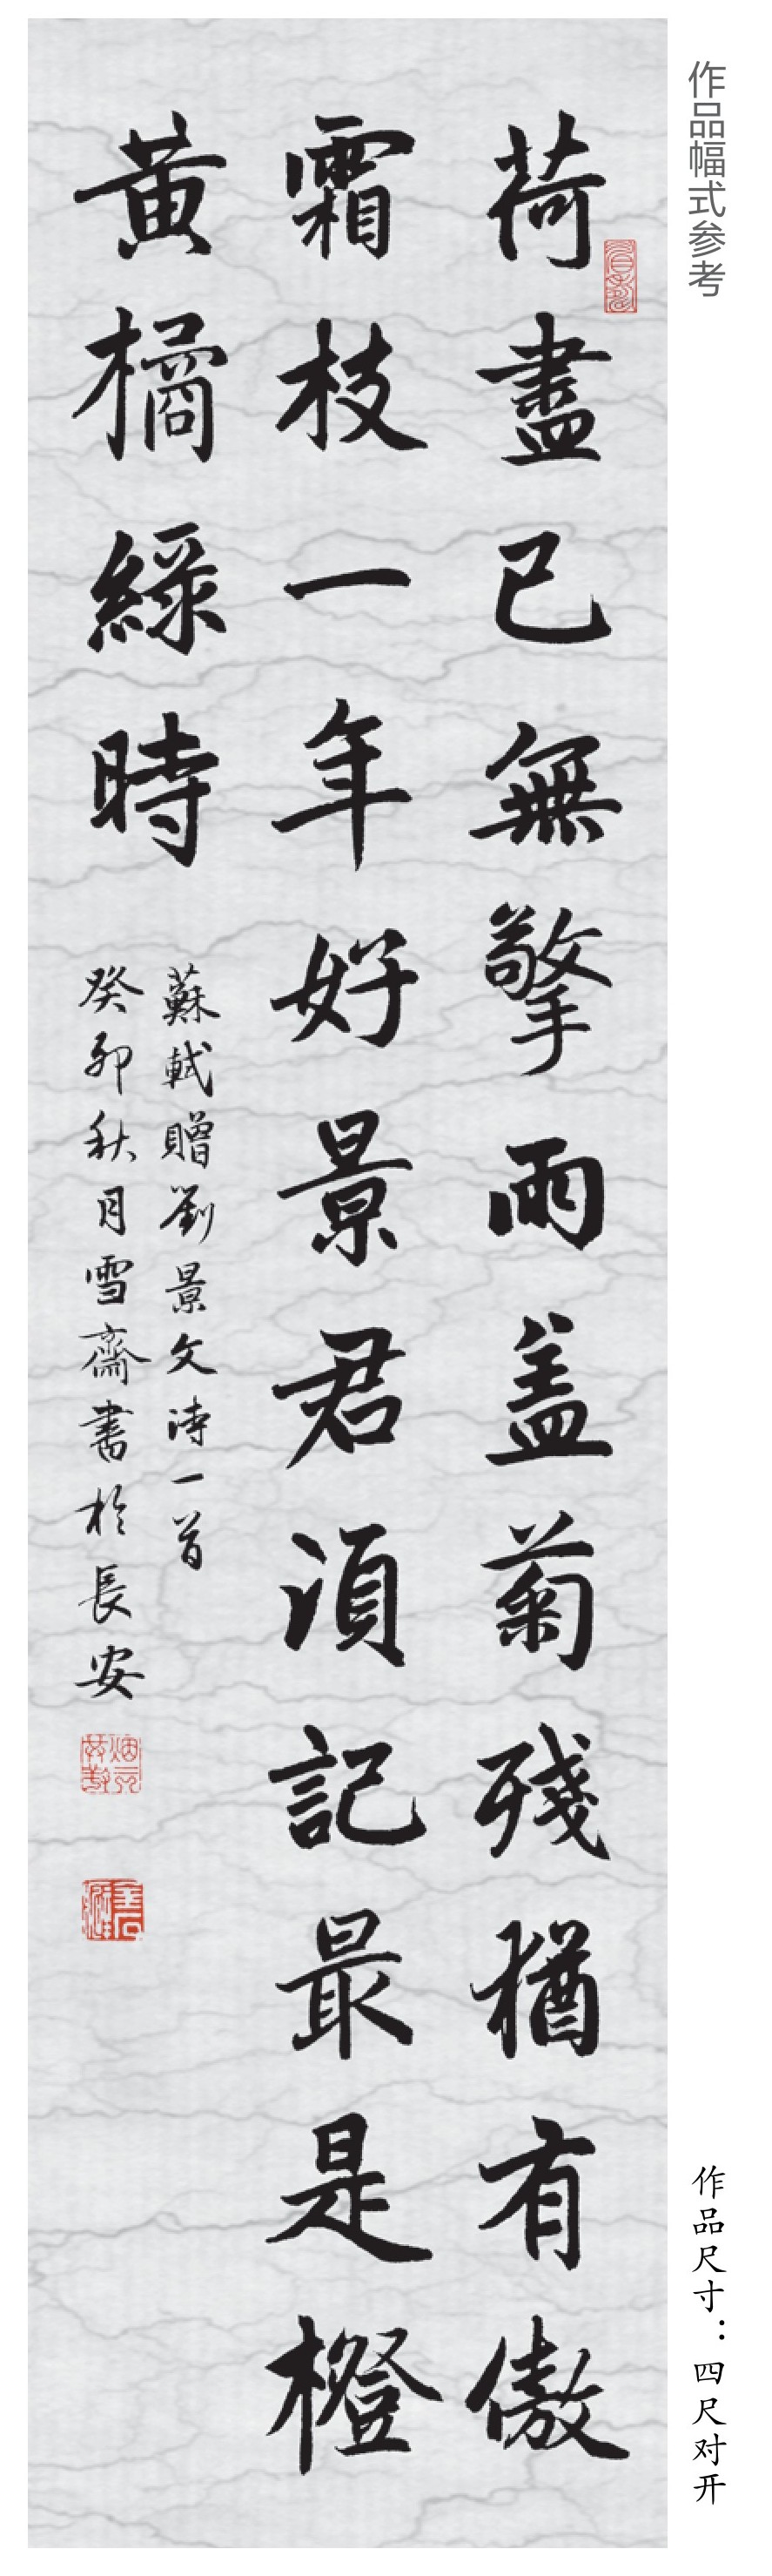 作品幅式参考
荷盡已無擎雨盖菊殘猶有傲
霜枝一年好景君須記最是橙
黄橘綠時
蘇軾贈劉景文詩一首
癸卯秋月雪齋書於長安
作品尺寸：四尺对开